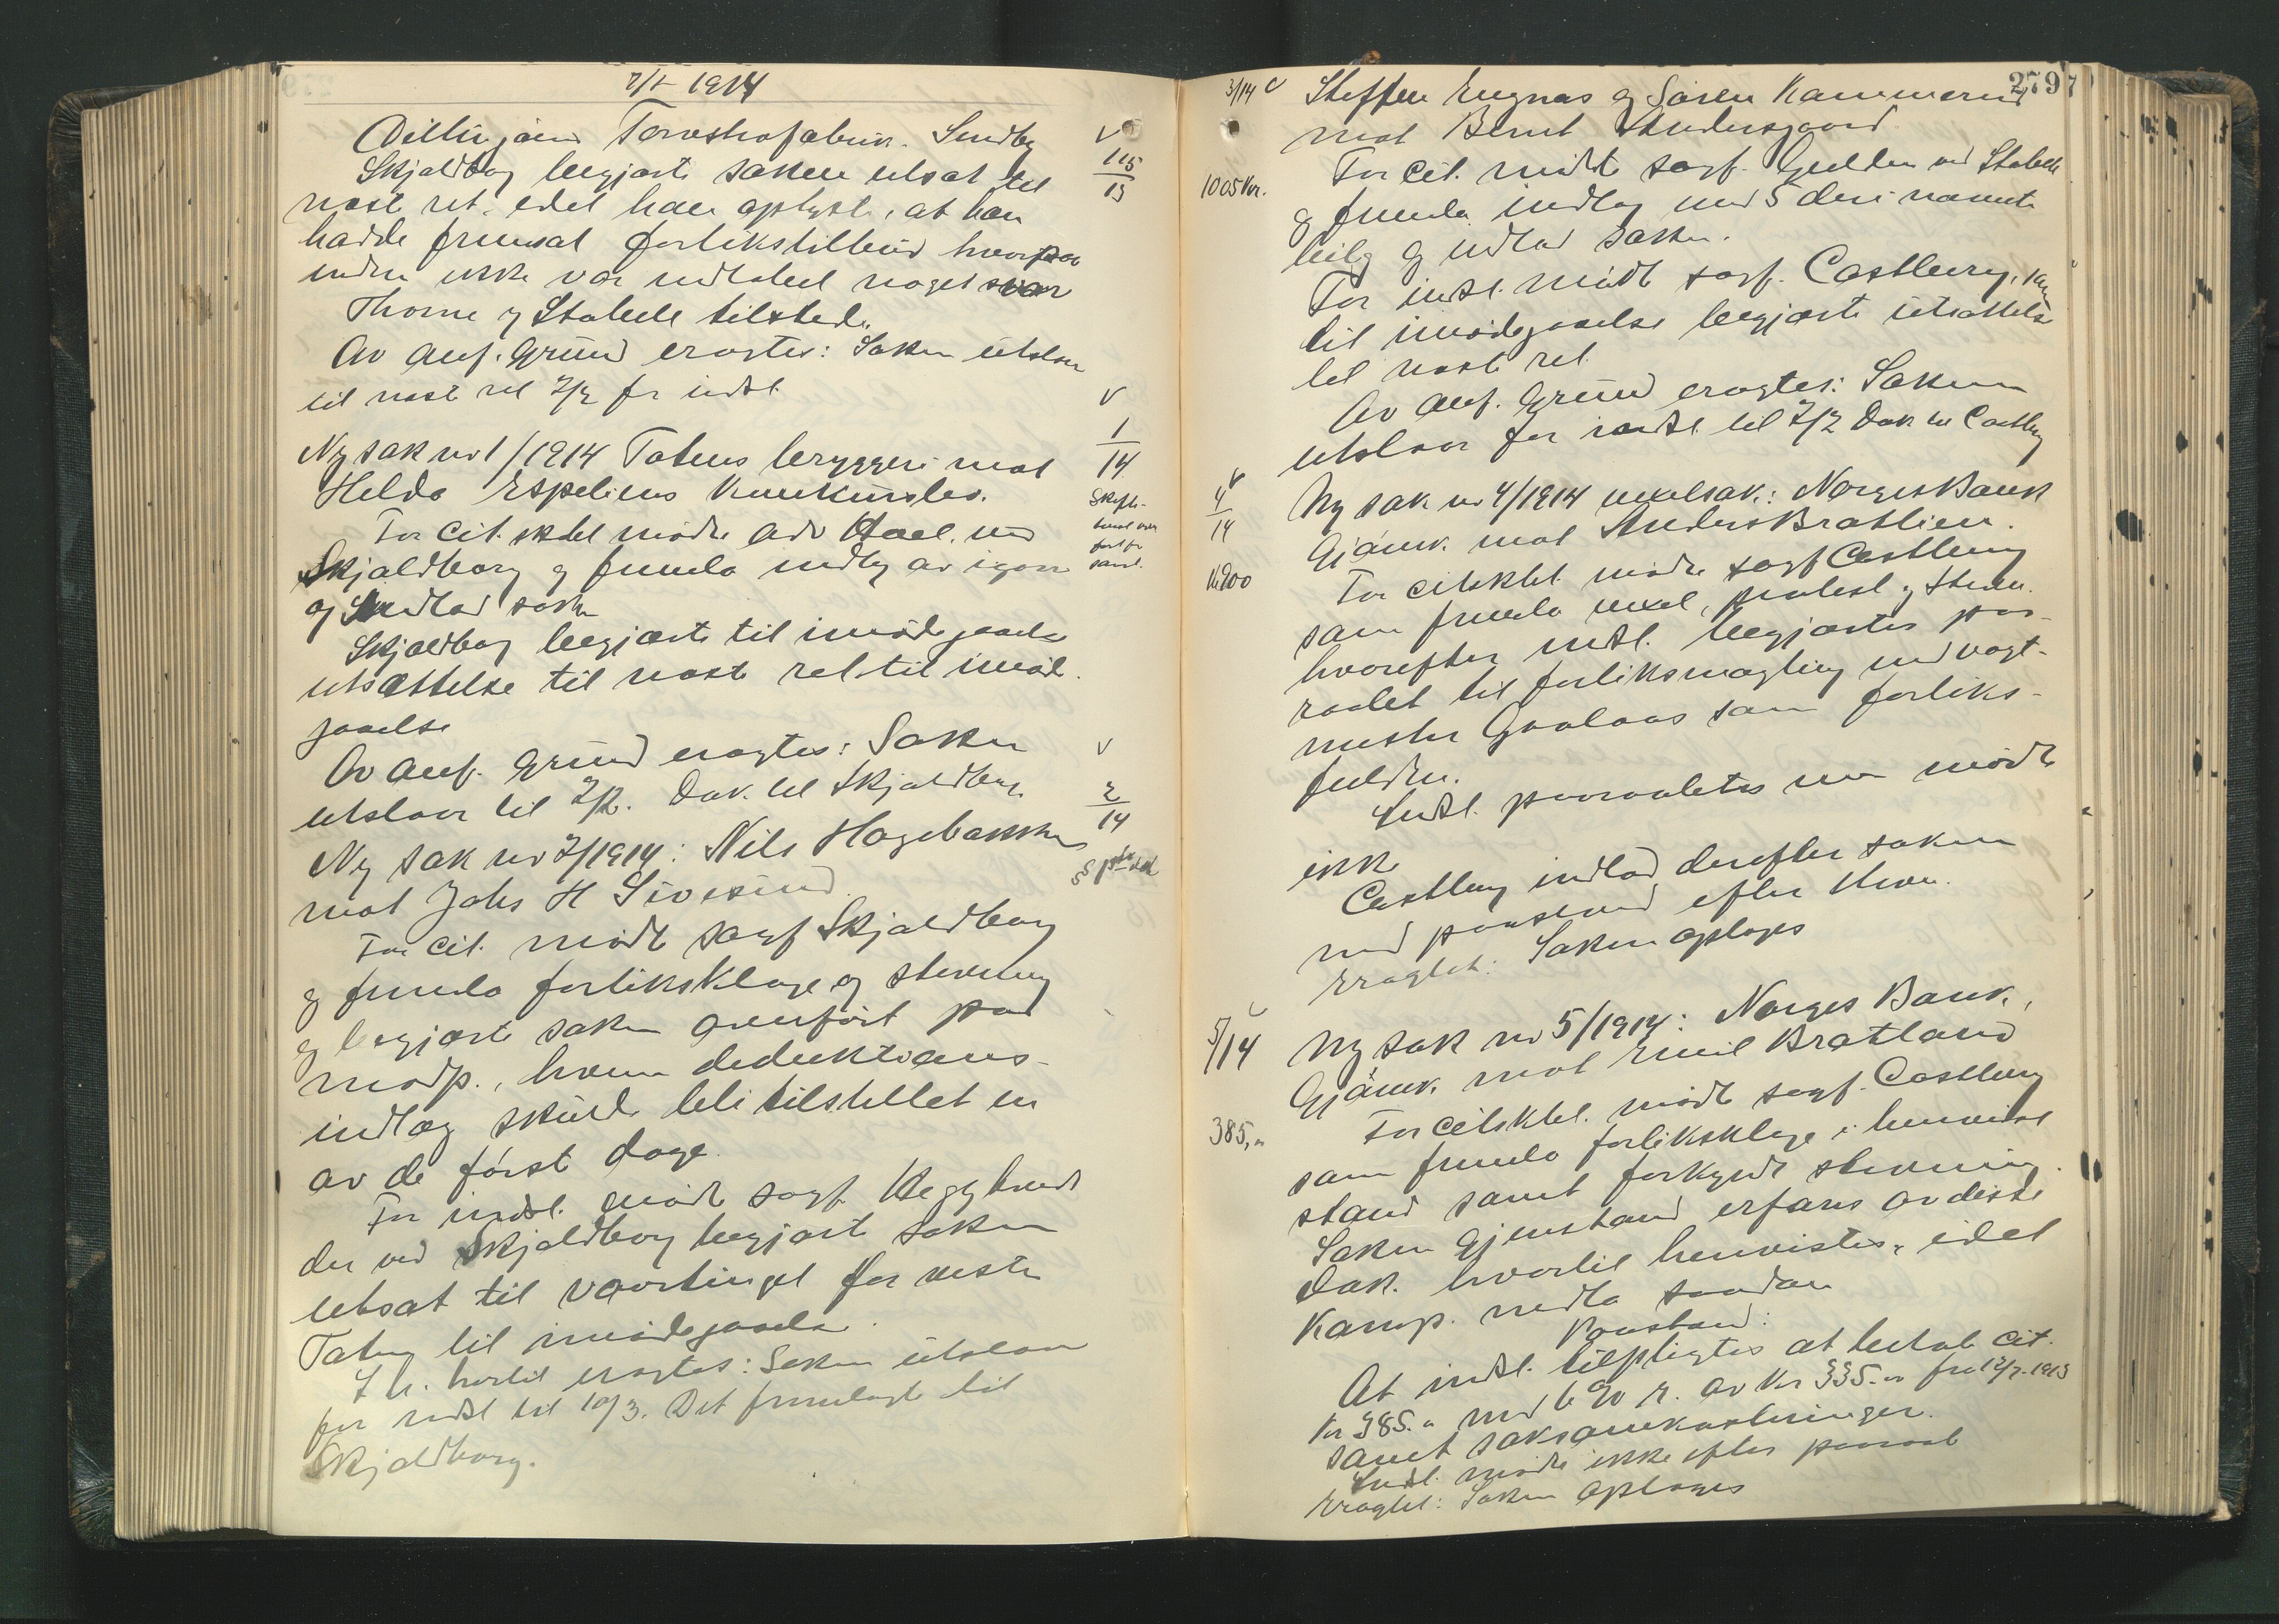 7/1 1914
Torvstrøfabrik. Sundby
v
115
13
Skjaldborg begjærte saken utsat til
næste ret, idet han oplyste, at han
hadde fremsat forlikstilbud hvorpaa
endnu ikke var indløbet noget svar
Thorne og Stabell tilstede.
Av anf. grund eragtes: Saken utstaar
til næste ret 7/2 for indst.
v
1
14
Ny sak nr 1/1914 Totens bryggeri mot
Helda Espeliens konkursbo.
For cit. sktel mødte adv Hoel ved
Skjaldborg og fremla indlæg av igaar
og indlod saken
Skjaldborg begjærte til imødegaaelse
utsættelse til næste ret til imøde-
gaaelse
Av anf. grund eragtes: Saken
utstaar til 7/2. Dok. til Skjaldborg.
v
2
14
Ny sak nr 2/1914: Nils Hagebakken
mot Johs H Sivesind.
For cit. mødte sagf Skjaldborg
og fremla forliksklage og stevning
og begjærte saken overført paa
modp., hvem deduktions-
indlæg skulde bli tilstillet en
av de første dage.
For indst. mødte sagf.
der ved Skjaldborg begjærte saken
utsat til vaartinget for vestre
Toten til imødegaaelse.
I h. hertil eragtes: Saken utstaar
for indst til 10/3. Det fremlagte til
Skjaldborg.
279
3/14 v
Steffen Engnæs og Søren Kammerud
mot Bernt Andersgaard.
1005 kr.
For cit. mødte sagf. Gulden ved Stabell
og fremla indlæg med 5 deri nævnte
bilag og indlod saken.
For indst. mødte sagf. Castberg, som
til imødegaaelse begjærte utsættelse
til næste ret.
Av anf. grund eragtes: Saken
utstaar for indst. til 7/2 Dok til Castberg
4 v
14
Ny sak nr 4/1914 vexelsak: Norges Bank
Gjøvik. mot Anders Bratlien.
Kr 900
For citsktel. mødte sagf Castberg
som fremla vexel, protest og stevn.
hvorefter indst. begjærtes paa-
raabt til forliksmægling med vogt-
mester Gaalaas som forliks-
fuldm.
Indst. paaraabtes men mødte
ikke
Castberg indlod derefter saken
med paastand efter stevn.
Eragtet: Saken optages
v
5/14
Ny sak nr 5/1914: Norges Bank,
Gjøvik. mot Emil Bratland
385,"
For citsktel. mødte sagf. Castberg
som fremla forliksklage i henvist
stand samt forkyndt stevning.
Saken gjenstand erfares av disse
dok. hvortil henvistes, idet
Komp. nedla saadan
Paastand:
At indst. tilpligtes at betale cit.
Kr 385." med 6 % r. av kr 335." fra 12/7. 1913
samt saksomkostninger.
Indst. mødte ikke efter paaraab
Eragtet: Saken optages